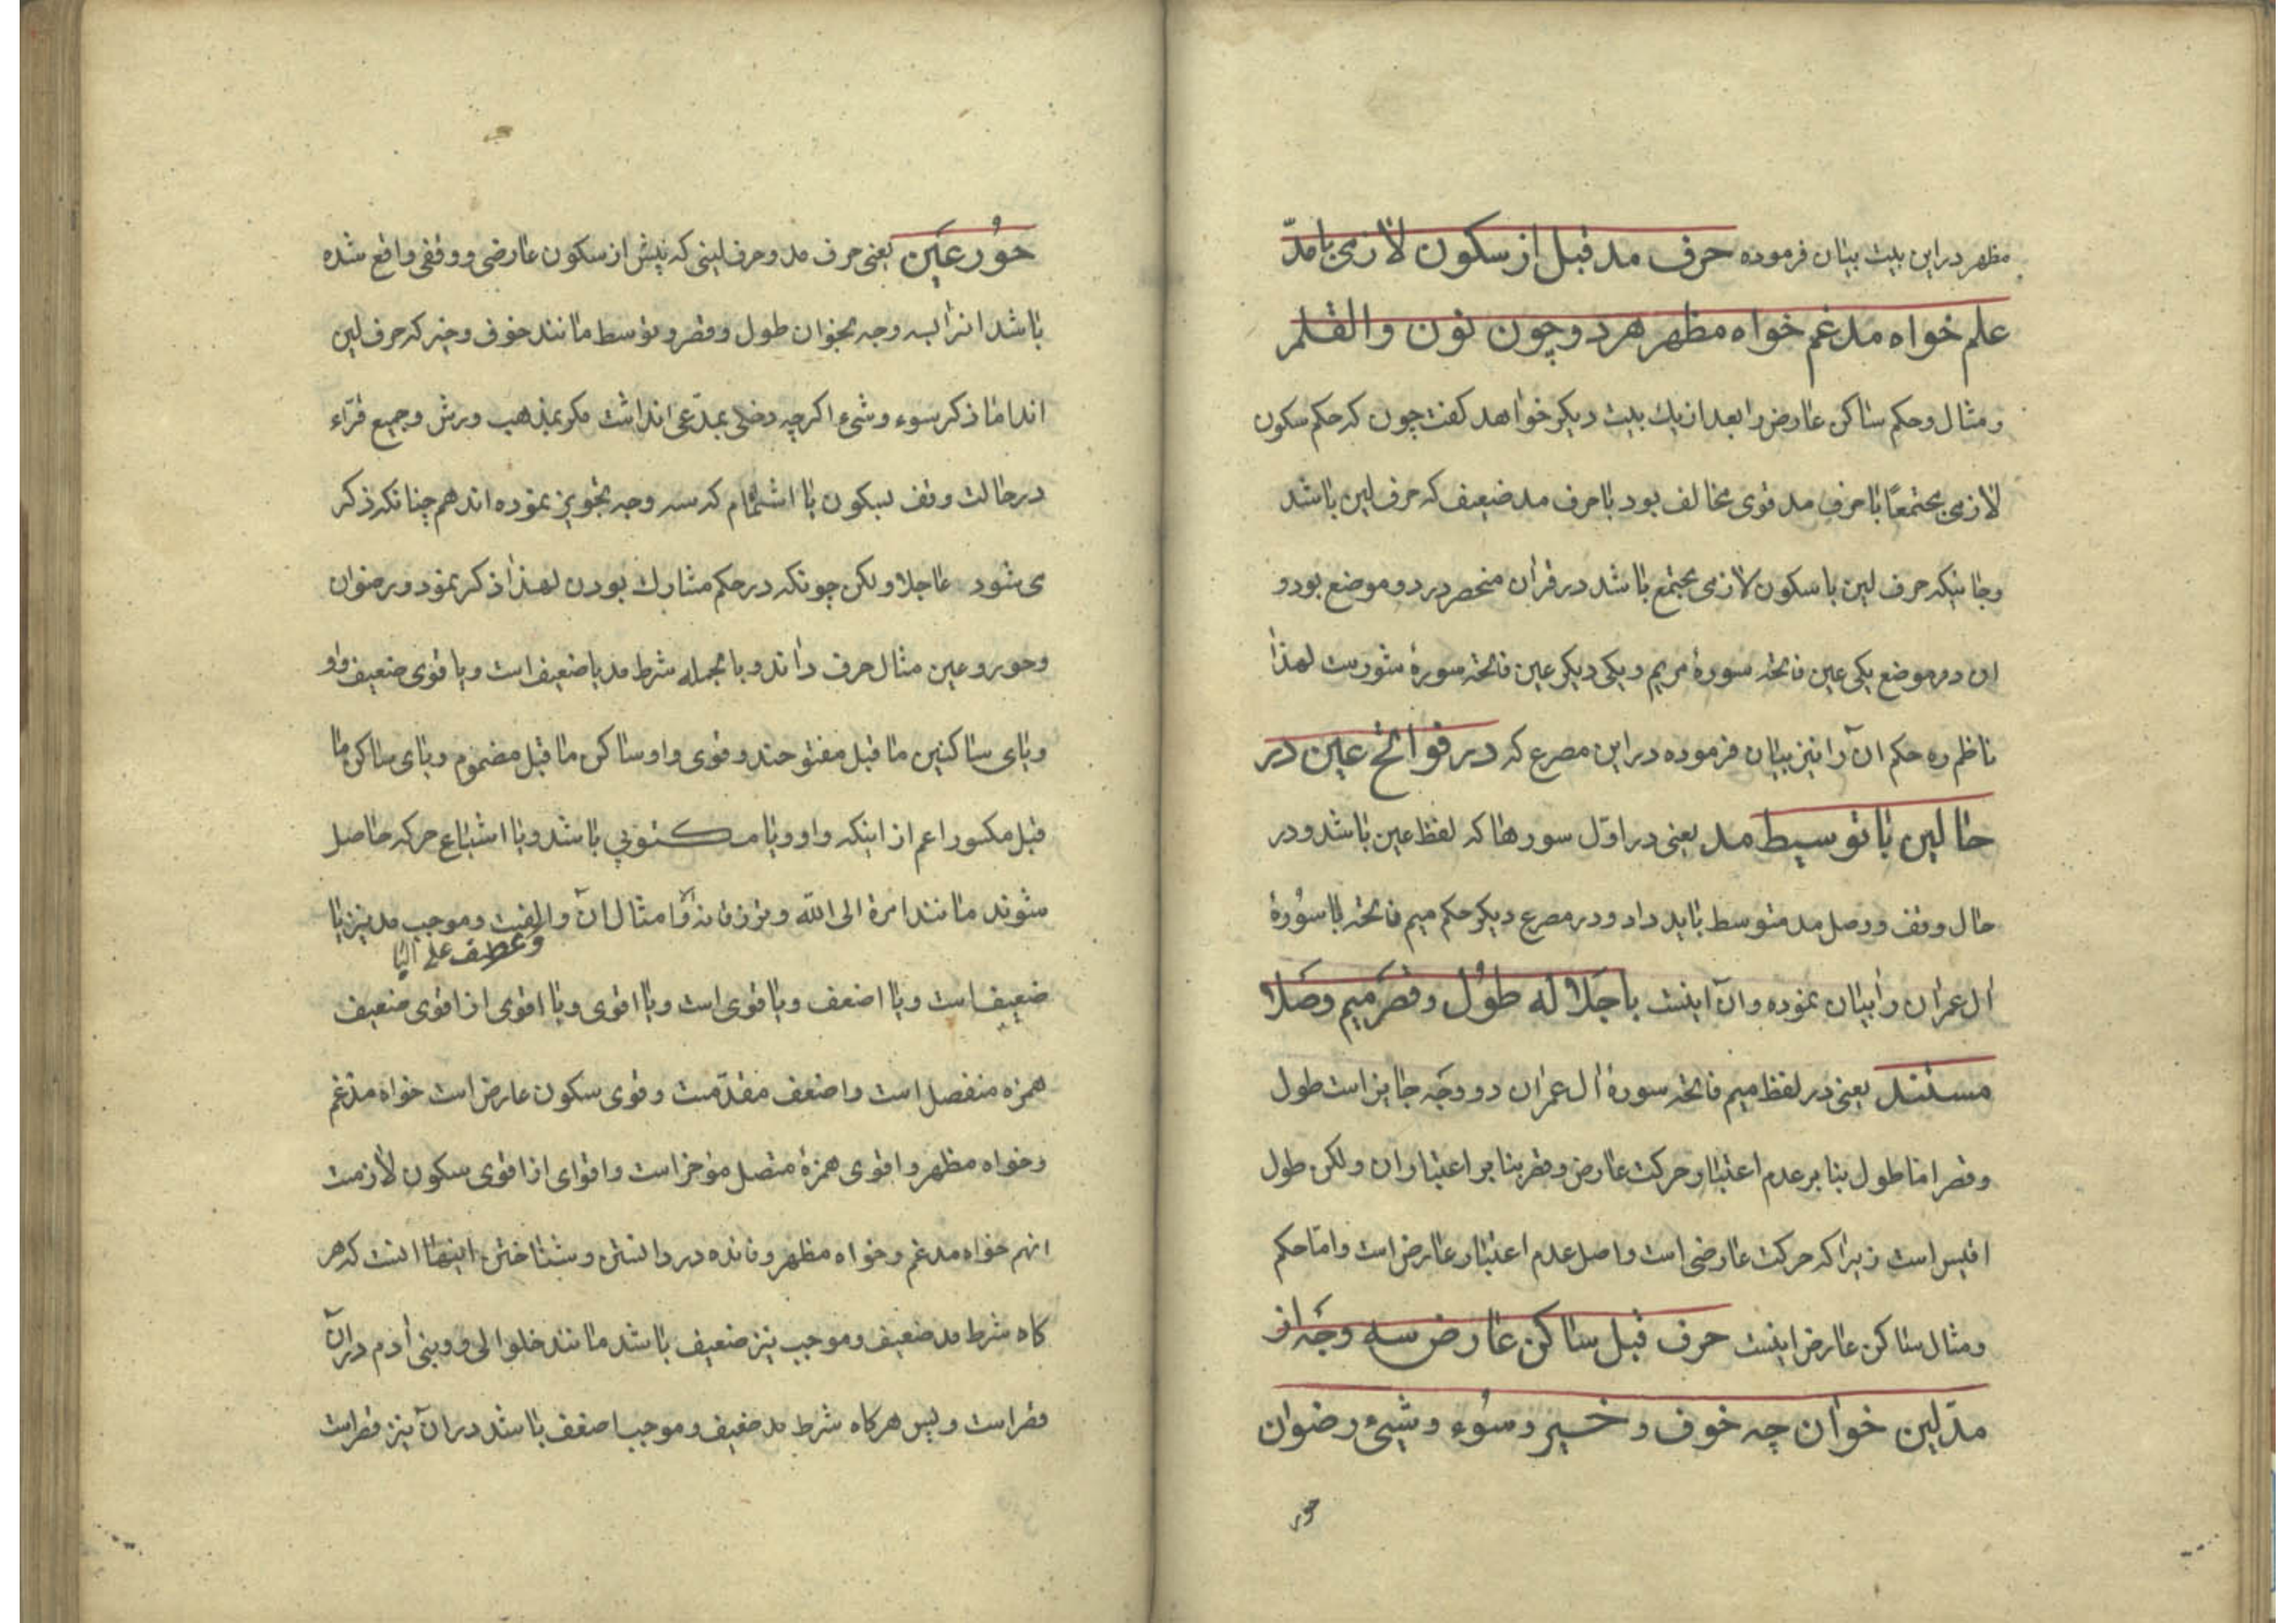 مظهر در این بیت بیان فرموده حرف مد قبل از سکون لازمی با مدّ
علم خواه مدغم خواه مظهر هر دو چون نون والقلم
و مثال و حکم ساکن عارض را بعد از یك بیت دیکر خواهد کفت چون که حکم سکون
لازمی مجتمعًا با حرف مد قوی مخالف بود با حرف مد ضعیف که حرف لین باشد
وجائیکه حرف لین با سکون لازمی مجتمع باشد در قران منحصر در دو موضع بود و
ان دو موضع یکی عین فاتحه سورهٔ مریم و یکی دیکر عین فاتحه سورهٔ شورست لهذا
ناظم ره حکم آن را نیز بیان فرموده در این مصرع که در فواتح عین در
حالین با توسیط مد یعنی در اوّل سورها که لفظ عین باشد و در
حال وقف و وصل مد متوسط باید داد و در مصرع دیکر حکم میم فاتحه با سُورهٔ
ال عمران را بیان نموده وآن اینست با جَلاله طوُل و قصَر میم وصَلا
مستند یعنی در لفظ میم فاتحه سورهٔ ال عمران دو وجَه جایز است طول
و قصر اما طول بنا بر عدم اعتبار حرکت عارض و قصر بنا بر اعتبار ان ولکن طول
اقیس است زیرا که حرکت عارضی است و اصل عدم اعتبار عارض است و امّا حکم
و مثال ساکن عارض اینست حرف قبل ساکن عارض سه وجَه از
مدّ لین خوان چه خوف و خیر و سوُء و شیئ و رضوان
حور
حوُر عَین یعنی حرف مد و حرف لینی که پیش از سکون عارضی و وقفی واقع شده
باشد انرا بسه وجه بخوان طول و قصر و توسط مانند خوف و خیر که حرف لین
اند اما ذکر سوء و شیء اکرچه دخلی بمدّعی نداشت مکر بمذهب ورش و جمیع قرّاء
در حالت وقف بسکون یا اشمام که سه وجه تجویز نموده اند هم چنانکه ذکر
می شود عاجلا ولکن چونکه در حکم مشارك بودن لهذا ذکر نمود و رضوان
و حور و عین مثال حرف داند و بالجمله شرط مد یا ضعیف است و یا قوی ضعیف واو
و یای ساکنین ما قبل مفتوحند و قوی واو ساکن ما قبل مضموم و یای ساکن ما
قبل مکسور اعم از اینکه واو و یا مکتوبی باشد و یا اشباع حرکه حاصل
شوند مانند امرهٔ الی الله و ترزقانه و امثال آن والفیت و موجب مد نیز یا
و عطف علی الیا
ضعیف است و یا اضعف و یا قوی است و یا اقوی و یا اقوی از اقوی ضعیف
همزه منفصل است و اضعف مقدّمست و قوی سکون عارض است خواه مدغم
و خواه مظهر و اقوی همزهٔ متصل مؤخر است و اقوای از اقوی سکون لازمست
انهم خواه مدغم و خواه مظهر و فائده در دانستن و شناختن اینها انست که هر
کاه شرط مد ضعیف و موجب نیز ضعیف باشد مانند خلوا الی و و بنی ادم در آن
قصر است و پس هرکاه شرط مد ضعیف و موجب اضعف باشد در آن نیز قصر است